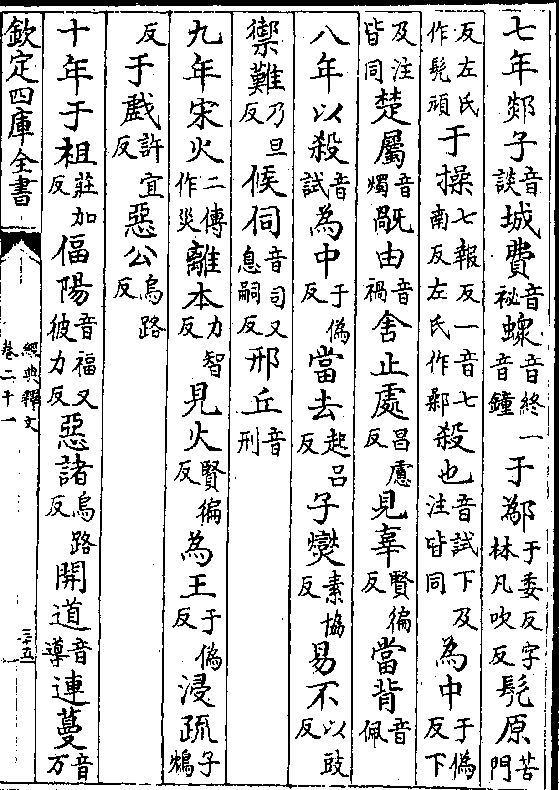 七年郯子音談城費音祕䗥音終一音鐘于鄬于委反字林凡吹反髡原苦門
反左氏作髡頑于操七報反一音七南反左氏作鄵殺也音試下及注皆同為中于偽反下
及注皆同楚屬音燭旤由音禍舍止處昌慮反見辜賢徧反當背音佩
八年以殺音試為中于偽反當去起呂反子燮素協反易不以豉反
禦難乃旦反候伺音司又息嗣反邢丘音刑
九年宋火二傳作災離本力智反見火賢徧反為王于偽反浸疏子鴆
反于戲許宜反惡公烏路反
十年于柤莊加反偪陽音福又彼力反惡諸烏路反開道音導連蔓音万
欽定四庫全書
經典釋文
卷二十一
三五